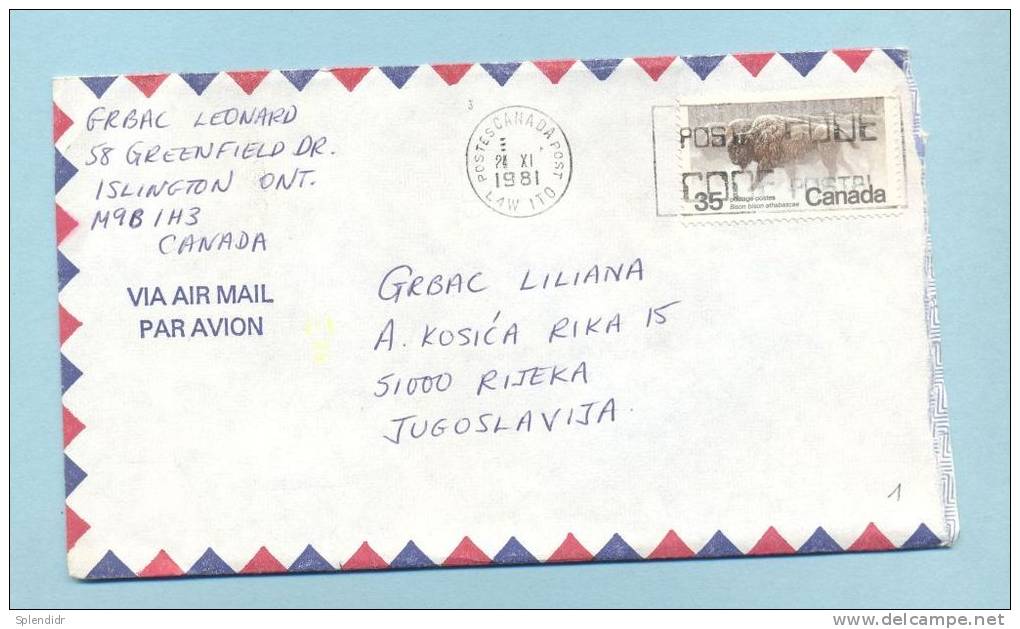 GRBAC LEONARD
58 GREENFIELD DR.
ISLINGTON ONT.
M9B 1H3
CANADA
VIA AIR MAIL
PAR AVION
3
POSTES CANADA POST
XI
1981
L4W 1T0
POSTAL CODE
CODE POSTAL
35
postage-postes
Bison bison athabascae
Canada
GRBAC LILIANA
A. KOSIĆA RIKA 15
51000 RIJEKA
JUGOSLAVIJA.
1
Splendidr
delcampe.net